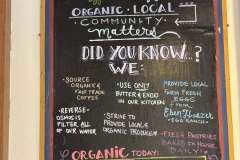 ORGANIC · LOCAL
COMMUNITY
matters
DID YOU KNOW...?
WE:
· SOURCE
ORGANIC &
FAIR TRADE
COFFEE
· REVERSE-
OSMOSIS
FILTER ALL
OF OUR WATER
· USE ONLY
BUTTER & EVOO
IN OUR KITCHEN
· STRIVE TO
PROVIDE LOCAL &
ORGANIC PRODUCE
· PROVIDE LOCAL
FARM FRESH
EGGS
FROM
EGG RANCH
· FRESH PASTRIES
BAKED IN HOUSE
DAILY
ORGANIC TODAY: